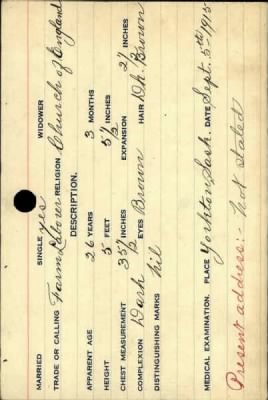 MARRIED SINGLE yes WIDOWER
TRADE OR CALLING Farm Laborer RELIGION Church of England
DESCRIPTION.
APPARENT AGE 26 YEARS 3 MONTHS
HEIGHT 5 FEET 5½ INCHES
CHEST MEASUREMENT 35½ INCHES EXPANSION 2½ INCHES
COMPLEXION Dark EYES Brown HAIR Dk. Brown
DISTINGUISHING MARKS nil
MEDICAL EXAMINATION. PLACE Yorkton Sask. DATE Sept. 5th 1915
Present address:- Not stated